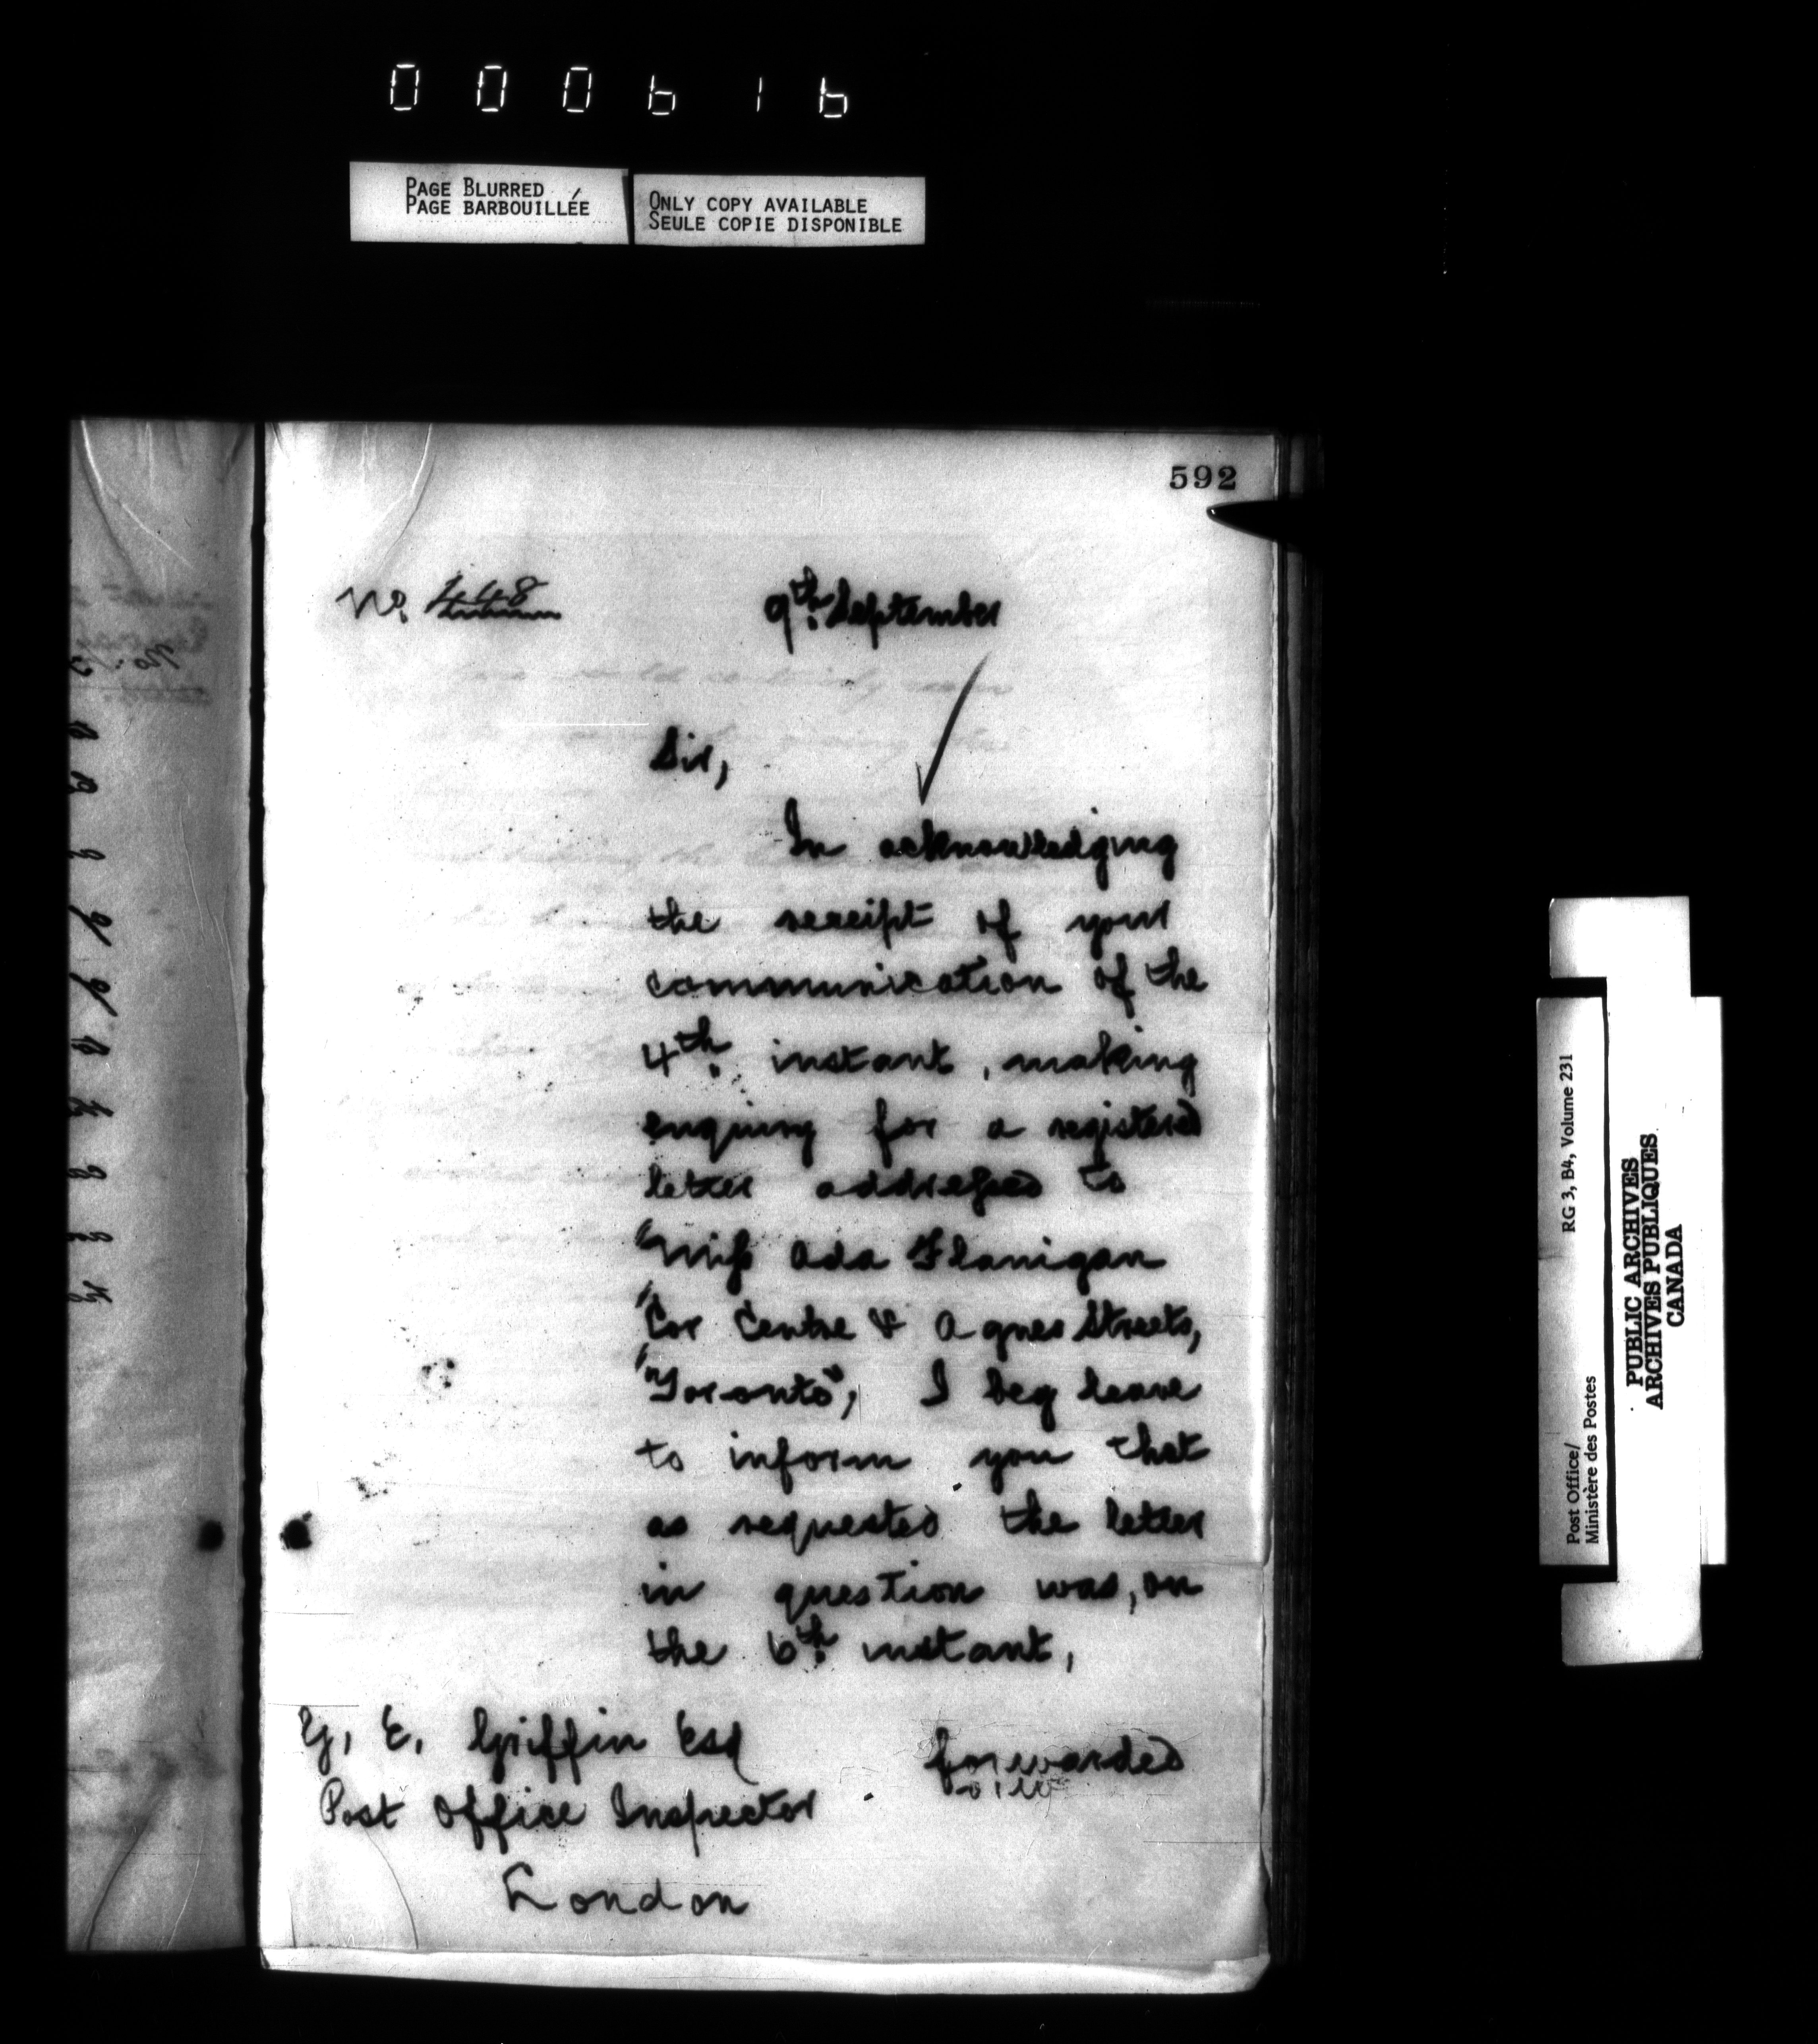 000616
PAGE BLURRED
PAGE BARBOUILLÉE
ONLY COPY AVAILABLE
SEULE COPIE DISPONIBLE
592
No. 448
9th. September
Sir,
In acknowledging
the receipt of your
communication of the
4th. instant, making
enquiry for a registered
letter addressed to
"Miss Ada Flanigan
"Cor Centre & Agnes Streets,
"Toronto", I beg leave
to inform you that
as requested the letter
in question was, on
the 6th. instant,
forwarded
G. E. Griffin Esq
Post Office Inspector
London
Post Office/
Ministère des Postes
RG 3, B4, Volume 231
PUBLIC ARCHIVES
ARCHIVES PUBLIQUES
CANADA